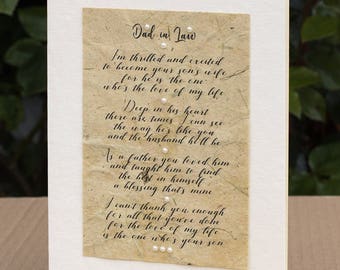 Dad in Law
I'm thrilled and excited
to become your son's wife
for he is 'the one'
who's the love of my life
Deep in his heart
there are times I can see
the way he's like you
and the husband he'll be
As a father you loved him
and taught him to find
the best in himself
a blessing that's mine
I can't thank you enough
for all that you've done
for the love of my life
is the one who's your son